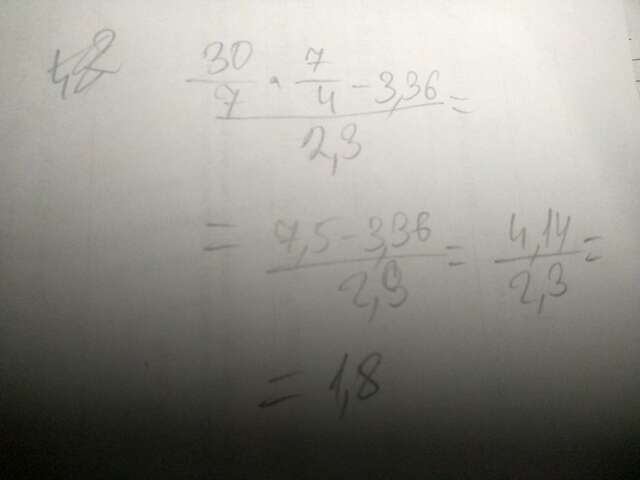 1,2
30/7 · 7/4 - 3,36 =
2,3
= 7,5 - 3,36 / 2,3 = 4,14 / 2,3 =
= 1,8